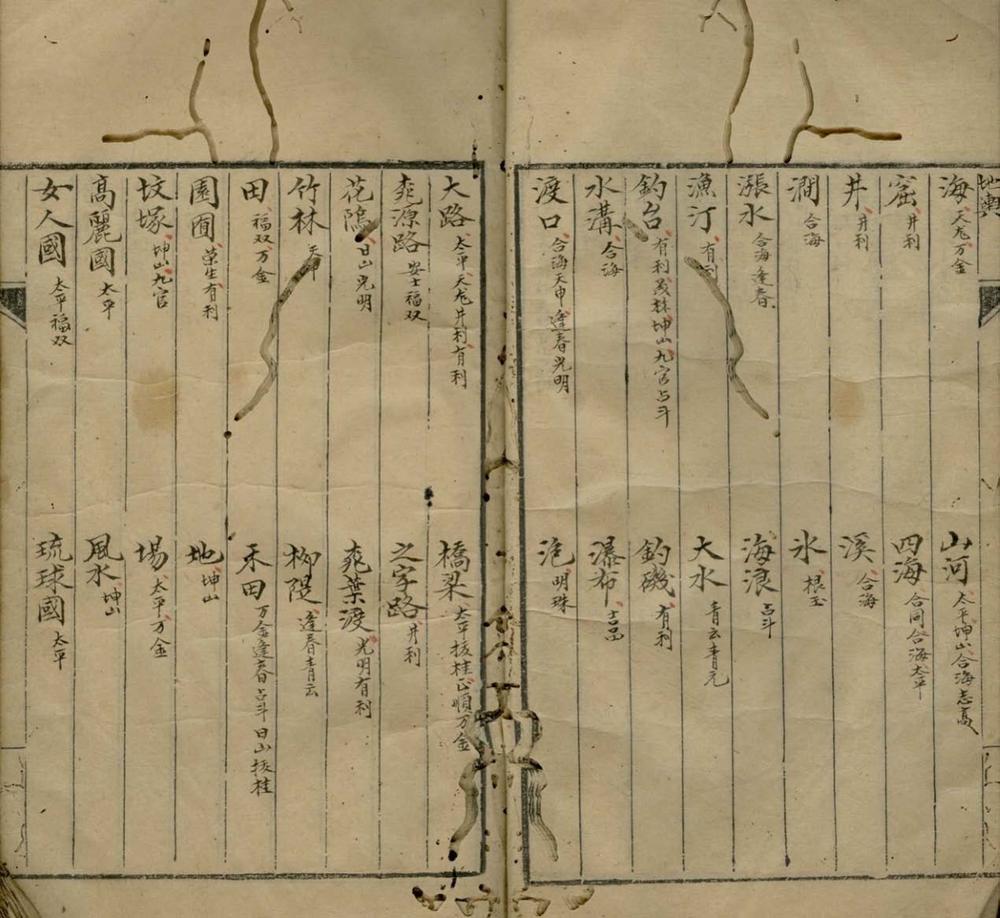 地輿
海 天龙 万金
山河 太平 坤山 合海 志高
窟 井利
四海 合同 合海 太平
井 井利
溪 合海
澗 合海
氷 根玉
漲水 合海 逢春
海浪 占斗
漁汀 有利
大水 青云 青元
釣台 有利 茂林 坤山 九官 占斗
釣磯 有利
水溝 合海
瀑布 吉品
渡口 合海 天申 逢春 光明
泡 明珠
大路 太平 天龙 井利 有利
橋梁 太平 扳桂 正順 万金
源路 安士 福双
之字路 井利
花塢 日山 光明
葉渡 光明 有利
竹林 天申
柳隄 逢春 青云
田 福双 万金
禾田 万金 逢春 占斗 日山 扳桂
園囿 荣生 有利
地 坤山
坟塚 坤山 九官
場 太平 万金
高麗國 太平
風水 坤山
女人國 太平 福双
琉球國 太平